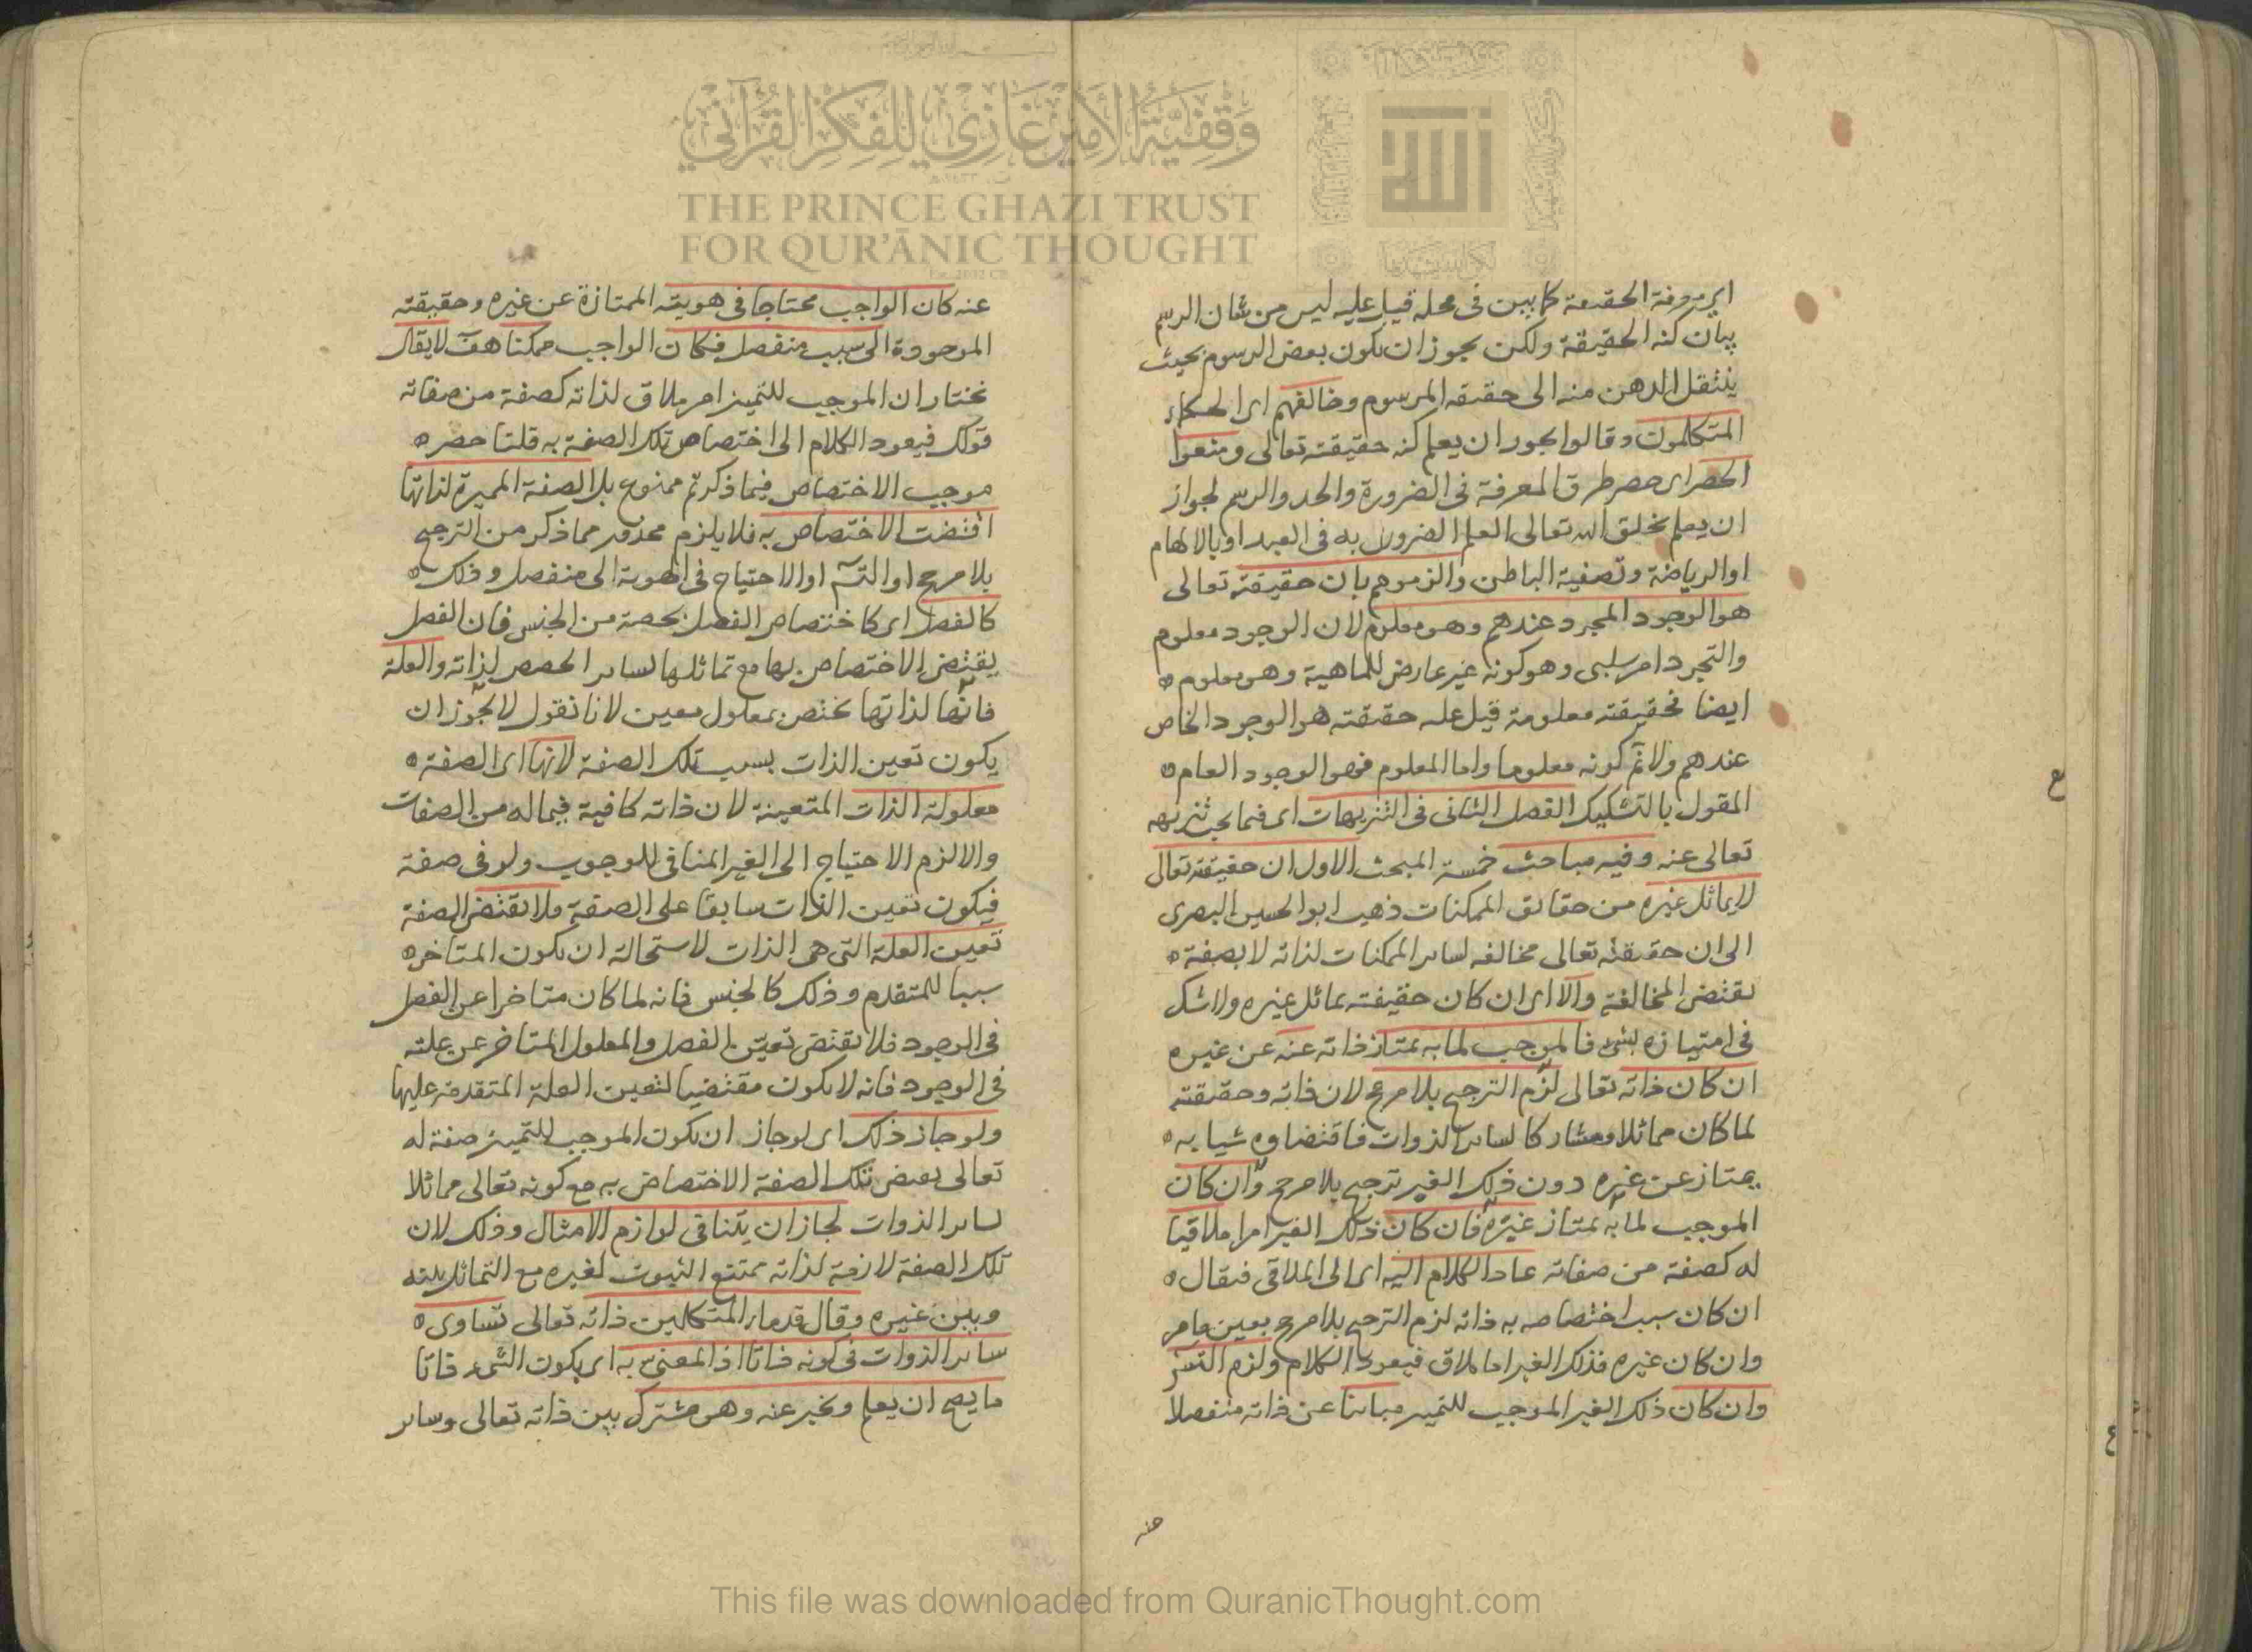 وقفية الأمير غازي للفكر القرآني
THE PRINCE GHAZI TRUST
FOR QUR'ĀNIC THOUGHT
الله
الحقيقة كما بين فى محله قيل عليه ليس من شان الرسم
بيان كنه الحقيقة ولكن يجوز ان يكون بعض الرسوم بحيث
ينتقل الذهن منه الى حقيقه المرسوم وخالفهم اى الحكماء
المتكلمون وقالوا يجوز ان يعلم كنه حقيقته تعالى ومنعوا
الحصر اى حصر طرق المعرفة فى الضرورة والحد والرسم لجواز
ان يعلم بخلق الله تعالى العلم الضرورى به فى العبد او بالالهام
او الرياضة وتصفية الباطن والزموهم بان حقيقته تعالى
هو الوجود المجرد عندهم وهو معلوم لان الوجود معلوم
والتجرد امر سلبى وهو كونه غير عارض للماهية وهو معلوم
ايضا فحقيقته معلومة قيل عليه حقيقته هو الوجود الخاص
عندهم ولا نم كونه معلوما واما المعلوم فهو الوجود العام
المقول بالتشكيك الفصل الثانى فى التنزيهات اى فيما يجب تنزيهه
تعالى عنه وفيه مباحث خمسة المبحث الاول ان حقيقته تعالى
لا يماثل غيره من حقائق الممكنات ذهب ابو الحسين البصرى
الى ان حقيقته تعالى مخالفه لساير الممكنات لذاته لا بصفة
يقتضى المخالفة والا اى ان كان حقيقته يماثل غيره ولا شك
فى امتيازه بشئ فالموجب لما به يمتاز ذاته عنه عن غيره
ان كان ذاته تعالى لزم الترجيح بلا مرجح لان ذاته وحقيقته
لما كان مماثلا ومشاركا لساير الذوات فاقتضاوه شيا به
يمتاز عن غيره دون ذلك الغير ترجيح بلا مرجح وان كان
الموجب لما به يمتاز غيره فان كان ذلك الغير امرا ملاقيا
له كصفة من صفاته عاد الكلام اليه اى الى الملاقى فيقال
ان كان سبب اختصاصه به ذاته لزم الترجيح بلا مرجح بعين مامر
وان كان غيره فذلك الغير اما ملاق فيعود الكلام ولزم التس
وان كان ذلك الغير الموجب للتميز مباينا عن ذاته منفصلا
عنه
عنه كان الواجب محتاجا فى هويته الممتازة عن غيره وحقيقته
الموجودة الى سبب منفصل فكان الواجب ممكنا هف لا يقال
نختار ان الموجب للتميز امر ملاق لذاته كصفة من صفاته
قولك فيعود الكلام الى اختصاص تلك الصفة به قلنا حصر
موجب الاختصاص فيما ذكرتم ممنوع بل الصفة المميزة لذاتها
اقتضت الاختصاص به فلا يلزم محذور مما ذكر من الترجيح
بلا مرجح او التس او الاحتياج فى الهوية الى منفصل وذلك
كالفصل اى كاختصاص الفصل بحصة من الجنس فان الفصل
يقتضى الاختصاص بها مع تماثلها لساير الحصص لذاته والعلة
فانها لذاتها يختص بمعلول معين لانا نقول لا يجوز ان
يكون تعين الذات بسبب تلك الصفة لانها اى الصفة
معلولة الذات المتعينة لان ذاته كافية فيما له من الصفات
والا لزم الاحتياج الى الغير المنافى للوجوب ولو فى صفة
فيكون تعين الذات سابقا على الصفة فلا يقتضى الصفة
تعين العلة التى هى الذات لاستحالة ان يكون المتاخر
سببا للمتقدم وذلك كالجنس فانه لما كان متاخرا عن الفصل
فى الوجود فلا يقتضى تعين الفصل والمعلول المتاخر عن علته
فى الوجود فانه لا يكون مقتضيا لتعين العلة المتقدمة عليها
ولو جاز ذلك اى لو جاز ان يكون الموجب للتميز صفة له
تعالى تلك الصفة الاختصاص به مع كونه تعالى مماثلا
لساير الذوات لجاز ان يتنافى لوازم الامثال وذلك لان
تلك الصفة لازمة لذاته يمتنع الثبوت لغيره مع التماثل بينه
وبين غيره وقال قدماء المتكلمين ذاته تعالى تساوى
ساير الذوات فى كونه ذاتا اذ المعنى به اى بكون الشئ ذاتا
ما يصح ان يعلم ويخبر عنه وهو مشترك بين ذاته تعالى وساير
ع
ع
This file was downloaded from QuranicThought.com